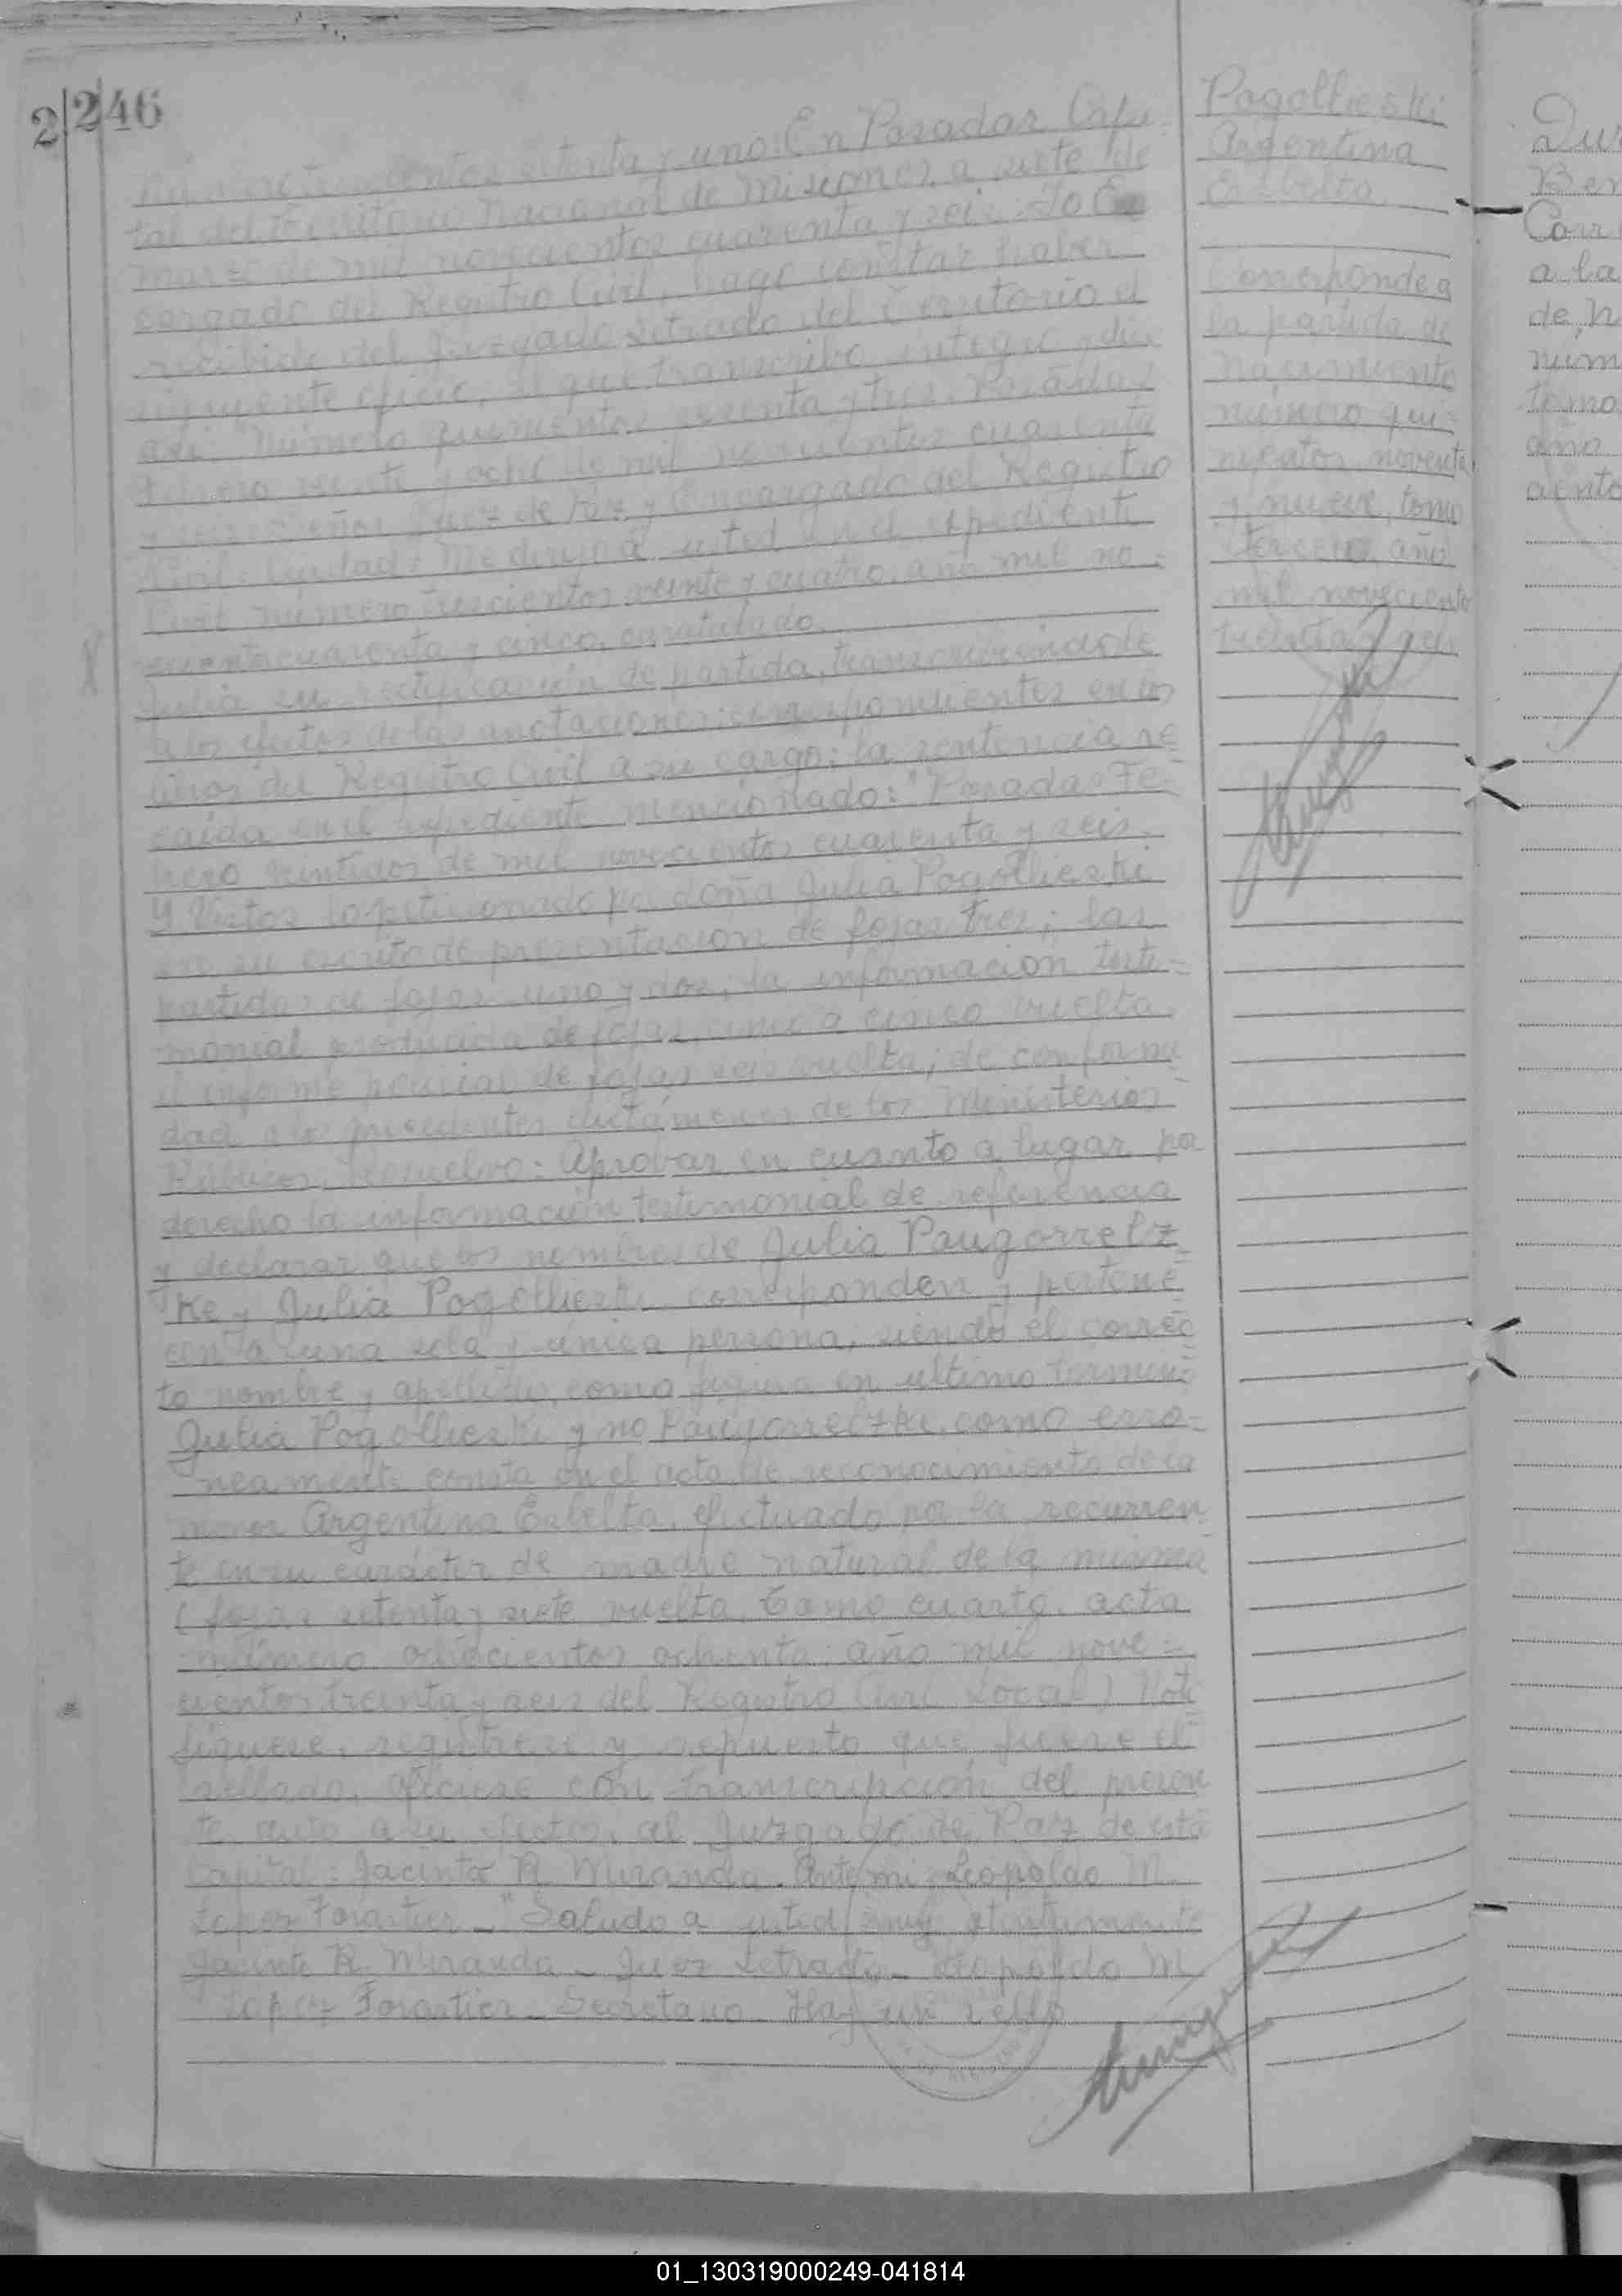 2246
Número trescientos setenta y uno: En Posadas Capi-
tal del Territorio Nacional de Misiones, a siete de
marzo de mil novecientos cuarenta y seis: Yo En
cargado del Registro Civil, hago constar haber
recibido del Juzgado Letrado del Territorio el
siguiente oficio, el que transcribo íntegro y dice
así: "Número quinientos sesenta y tres. Posadas
Febrero veinte y ocho de mil novecientos cuarenta
y seis. Señor Juez de Paz y Encargado del Registro
Civil. Ciudad: Me dirijo a usted en el expediente
Civil número trescientos veinte y cuatro, año mil no-
vecientos cuarenta y cinco, caratulado
Julia su rectificación de partida, transcribiéndole
a los efectos de las anotaciones correspondientes en los
libros del Registro Civil a su cargo; la sentencia re-
caída en el expediente mencionado: "Posadas Fe-
brero veintidos de mil novecientos cuarenta y seis.
Y Vistos: lo peticionado por doña Julia Pogollieski
en su escrito de presentación de fojas tres; las
partidas de fojas uno y dos, la información testi-
monial producida de fojas cinco a cinco vuelta
el informe policial de fojas seis vuelta; de conformi
dad a los precedentes dictámenes de los Ministerios
Públicos, Resuelvo: Aprobar en cuanto a lugar por
derecho la información testimonial de referencia
y declarar que los nombres de Julia Paugorrelz-
Ke y Julia Pogollieski, corresponden y pertene
cen a una sola y única persona; siendo el correc
to nombre y apellido, como figura en ultimo término
Julia Pogollieski y no Paugorrelzke, como erro-
neamente consta en el acta de reconocimiento de la
menor Argentina Esbelta, efectuado por la recurren
te en su carácter de madre natural de la misma
(fojas setenta y siete vuelta, Tomo cuarto, acta
número ochocientos ochenta; año mil nove-
cientos treinta y seis del Registro Civil Local) Noti
fíquese, regístrese y repuesto que fuere el
sellado, ofíciese con transcripción del presen
te auto a su efectos, al Juzgado de Paz de esta
Capital: Jacinto R. Miranda. Ante mi: Leopoldo M.
Lopez Forastier_" Saludo a usted muy atentamente
Jacinto R. Miranda _ Juez Letrado _ Leopoldo M
Lopez Forastier _ Secretario. Hay un sello
Pogollieski
Argentina
Esbelta
Corresponde a
la partida de
nacimiento
número qui-
nientos noventa
y nueve, tomo
tercero año
mil novecientos
treinta y seis
Ber
Corr
a la
de n
núm
tomo
año
ciento
01_130319000249-041814